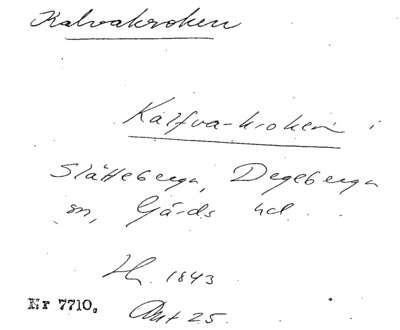 Kalvakroken
Kalfva-kroken i
Slätteberga, Degeberga
sn, Gärds hd.
Hn. 1843
Nr 7710. Akt 25.